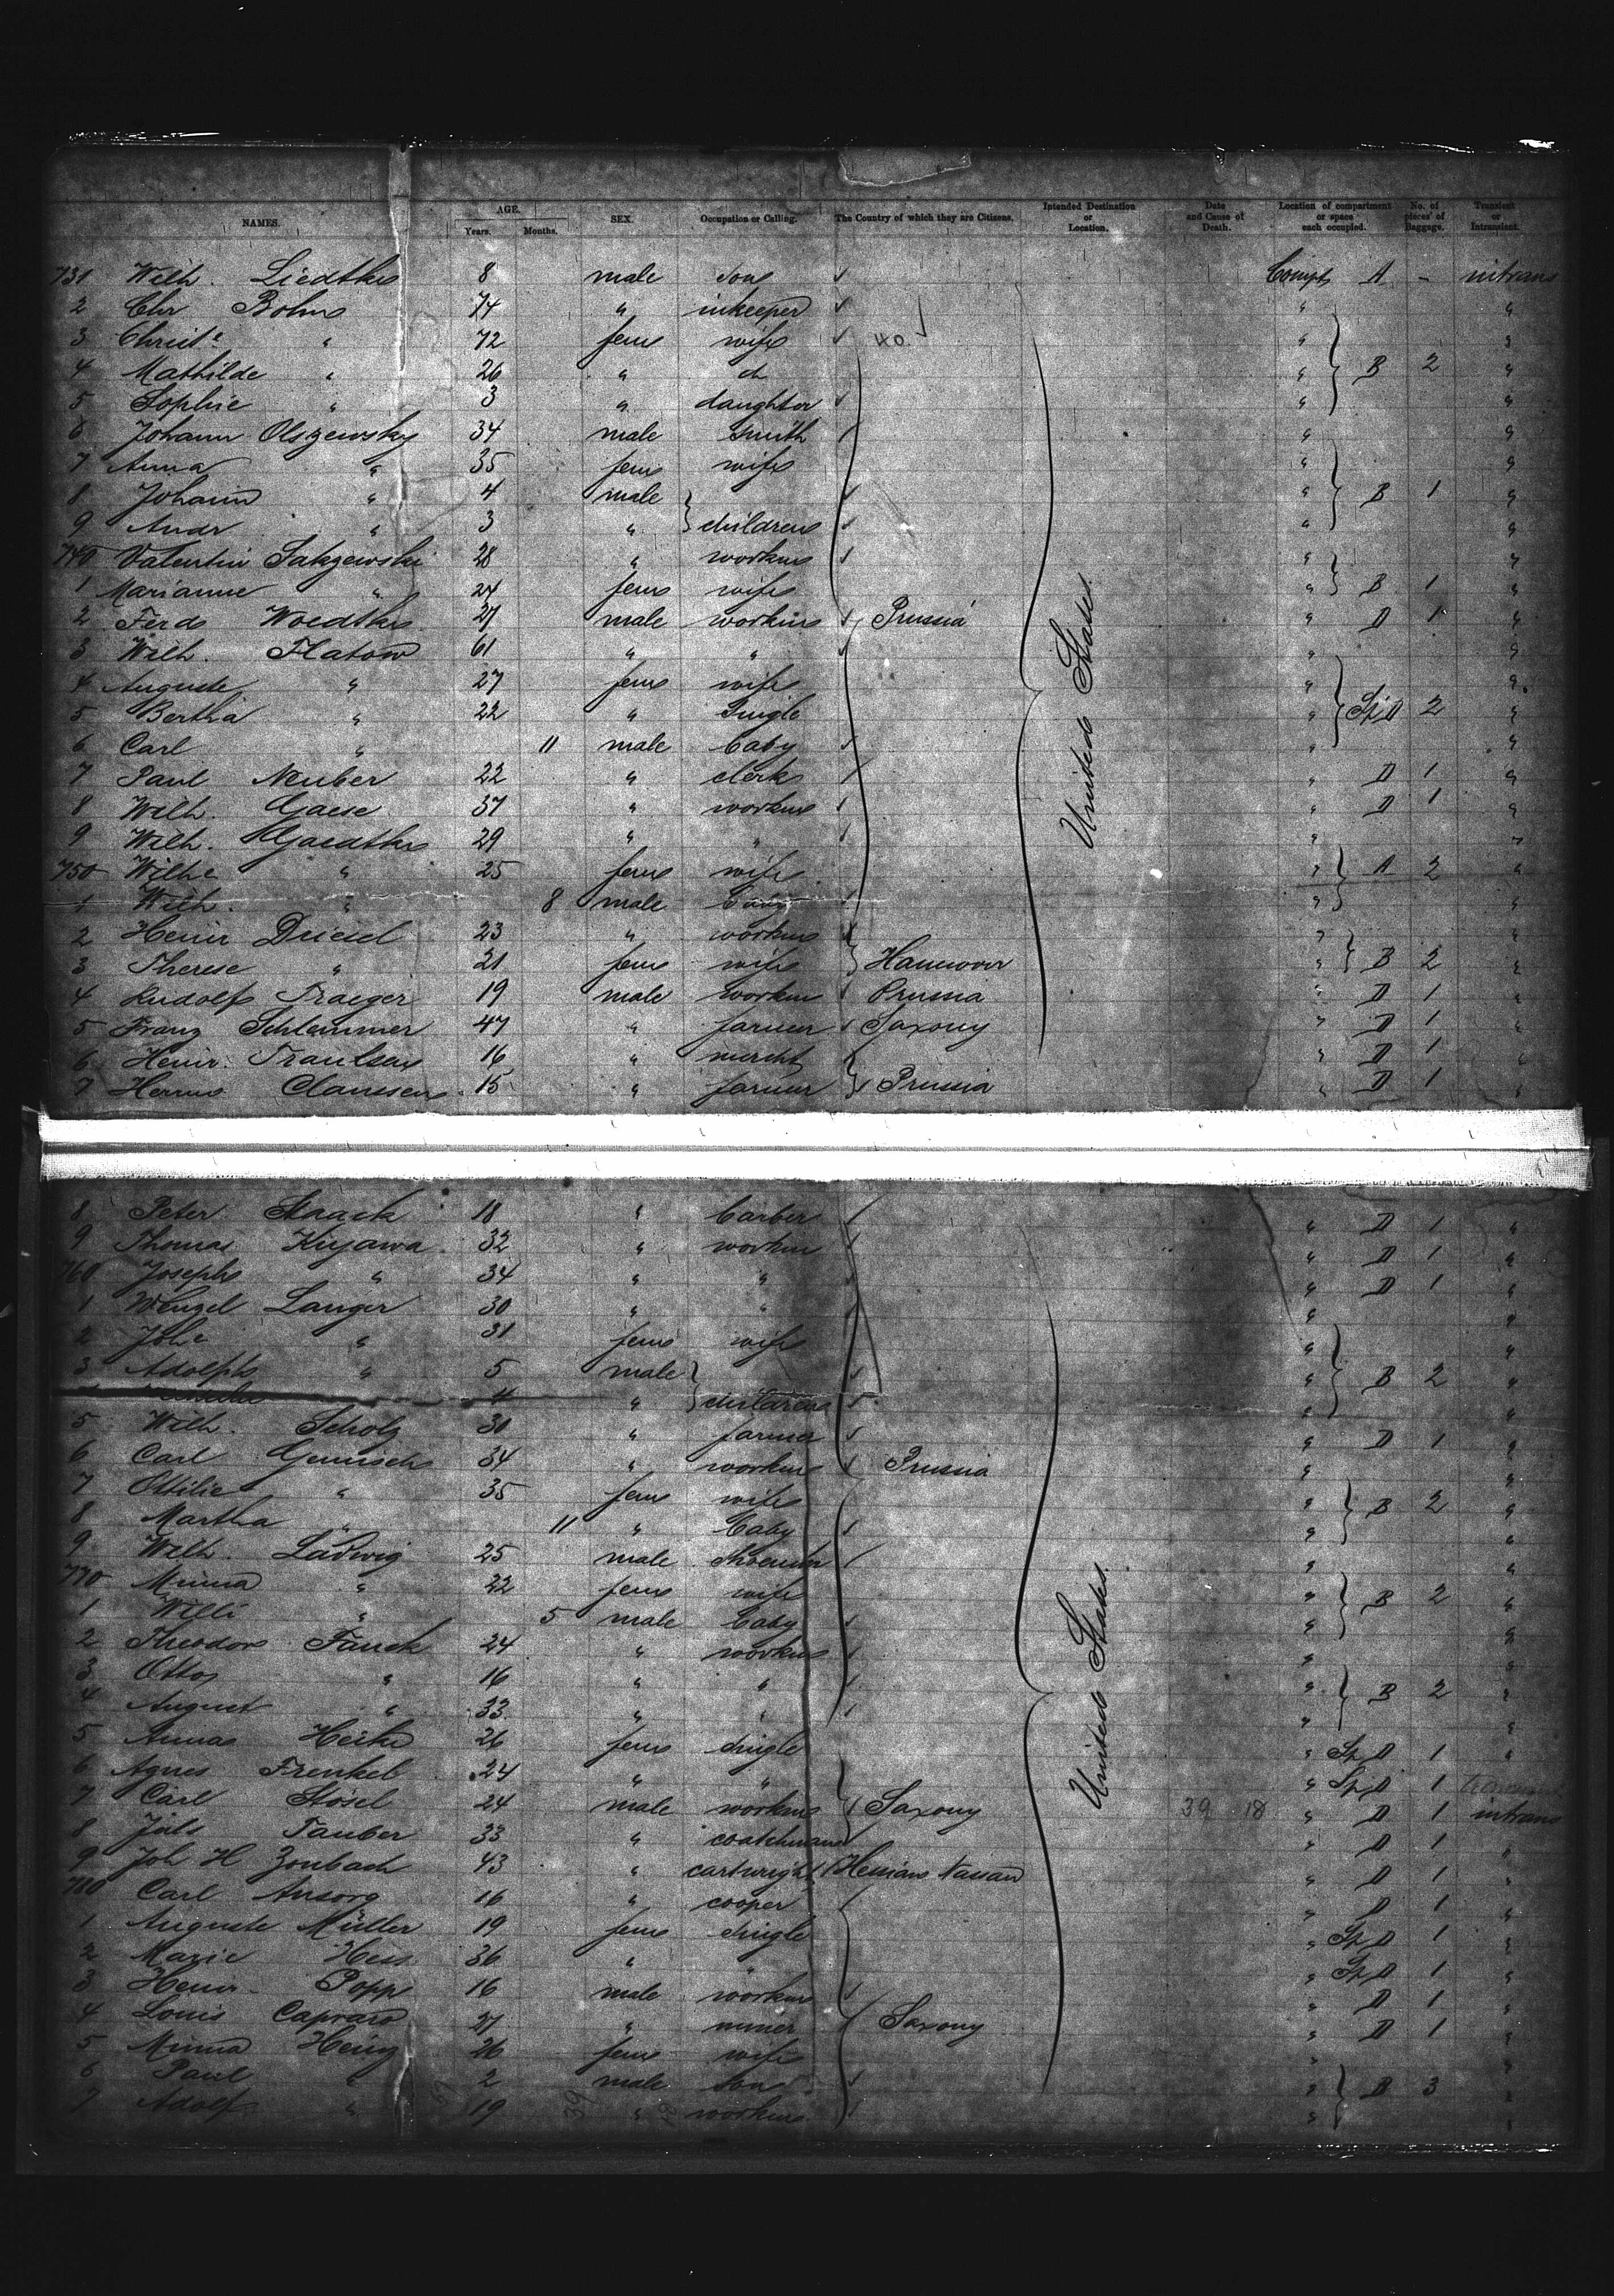 NAMES. AGE. Years. Months. SEX. Occupation or Calling. The Country of which they are Citizens. Intended Destination or Location. Date and Cause of Death. Location of compartment or space each occupied. No. of pieces of Baggage. Transient or Intransient.
731 Wilh. Liedtke 8 male son Compt A - intrans
2 Chr Bohm 74 " inkeeper " "
3 Christe " 72 fem wife 40 " "
4 Mathilde " 26 " do " B 2 "
5 Sophie " 3 " daughter " "
6 Johann Olszewsky 34 male smith " "
7 Anna " 35 fem wife " "
8 Johann " 4 male " B 1 "
9 Andr " 3 " children " "
740 Valentin 28 " workm " "
1 Marianne " 24 fem wife " B 1 "
2 Ferd Woedtke 27 male workm Prussia " D 1 "
3 Wilh. Flatow 61 " " " "
4 Auguste " 27 fem wife " "
5 Bertha " 22 " single " Sp D 2 "
6 Carl " 11 male baby " "
7 Paul Neuber 22 " clerk United States. " D 1 "
8 Wilh. Gaese 37 " workm " D 1 "
9 Wilh. Gaedtke 29 " " " "
750 Wilhe " 25 fem wife " A 2 "
1 Wilh. " 8 male baby " "
2 Heinr Driesel 23 " workm " "
3 Therese " 21 fem wife Hannover " B 2 "
4 Rudolf Traeger 19 male workm Prussia " D 1 "
5 Franz Schlemmer 47 " farmer Saxony " D 1 "
6 Heinr. Traulsen 16 " mercht " D 1 "
7 Herm Claussen 15 " farmer Prussia " D 1 "
8 Peter Staack 18 " barber " D 1 "
9 Thomas Kujawa 32 " workm " D 1 "
760 Joseph " 34 " " " D 1 "
1 Wenzel Langer 30 " " " "
2 Johe " 31 fem wife " "
3 Adolph " 5 male " B 2 "
4 " children " "
5 Wilh. Scholz 30 " farmer " D 1 "
6 Carl 34 " workm Prussia " "
7 Ottilie " 35 fem wife " B 2 "
8 Martha " 11 " baby " "
9 Wilh. Ludwig 25 male " "
770 Minna " 22 fem wife " B 2 "
1 Willi " 5 male baby " "
2 Theodor Fauck 24 " workm United States. " "
3 Otto " 16 " " " B 2 "
4 August " 33 " " " "
5 Anna Heike 26 fem single " Sp D 1 "
6 Agnes Frenkel 24 " " " Sp D 1
7 Carl Stosel 24 male workm Saxony 39 18 " D 1 intrans
8 Juls Tauber 33 " coatchman " D 1 "
9 Joh H Zonbach 43 " cartwright Hessian Nassau " D 1 "
780 Carl Ansorg 16 " cooper " D 1 "
1 Auguste Müller 19 fem single " Sp D 1 "
2 Marie Hess 36 " " " Sp D 1 "
3 Heinr. Popp 16 male workm " D 1 "
4 Louis Capraro 27 " miner Saxony " D 1 "
5 Minna 26 fem wife " "
6 Paul " 2 male son " B 3 "
7 Adolf " 19 " workm " "